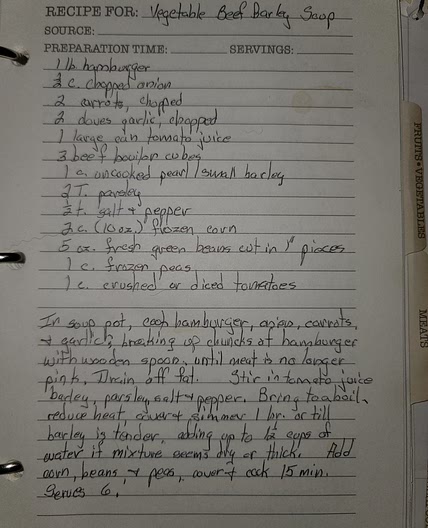 RECIPE FOR: Vegetable Beef Barley Soup
SOURCE:
PREPARATION TIME: SERVINGS:
1 lb. hamburger
1/2 c. chopped onion
2 carrots, chopped
2 cloves garlic, chopped
1 large can tomato juice
3 beef bouillon cubes
1 c. uncooked pearl/small barley
2 T. parsley
1/2 t. salt + pepper
2 c. (10 oz.) frozen corn
5 oz. fresh green beans cut in 1" pieces
1 c. frozen peas
1 c. crushed or diced tomatoes
In soup pot, cook hamburger, onion, carrots,
+ garlic, breaking up chuncks of hamburger
with wooden spoon, until meat is no longer
pink. Drain off fat. Stir in tomato juice
barley, parsley, salt + pepper. Bring to a boil,
reduce heat, cover + simmer 1 hr. or till
barley is tender, adding up to 1 1/2 cups of
water if mixture seems dry or thick. Add
corn, beans, + peas, cover + cook 15 min.
Serves 6.
FRUITS • VEGETABLES
MEATS